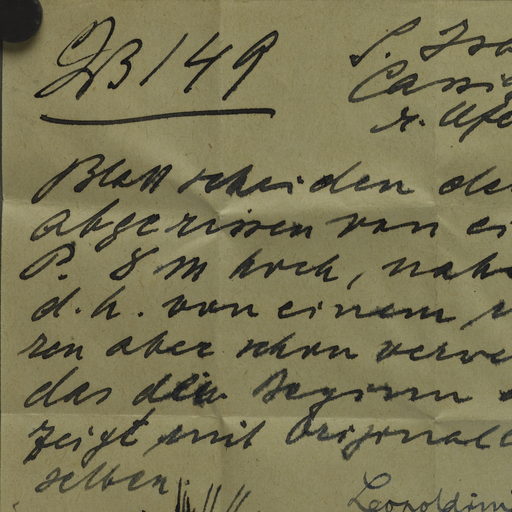 ZB 149
S. Isa
Cassi
r. Ufe
Blattscheiden de
abgerissen von ei
P. 8 m hoch, nahe
d. h. von einem
ren aber schon verwe
das den Beginn
zeigt mit Original
selben
Leopoldini